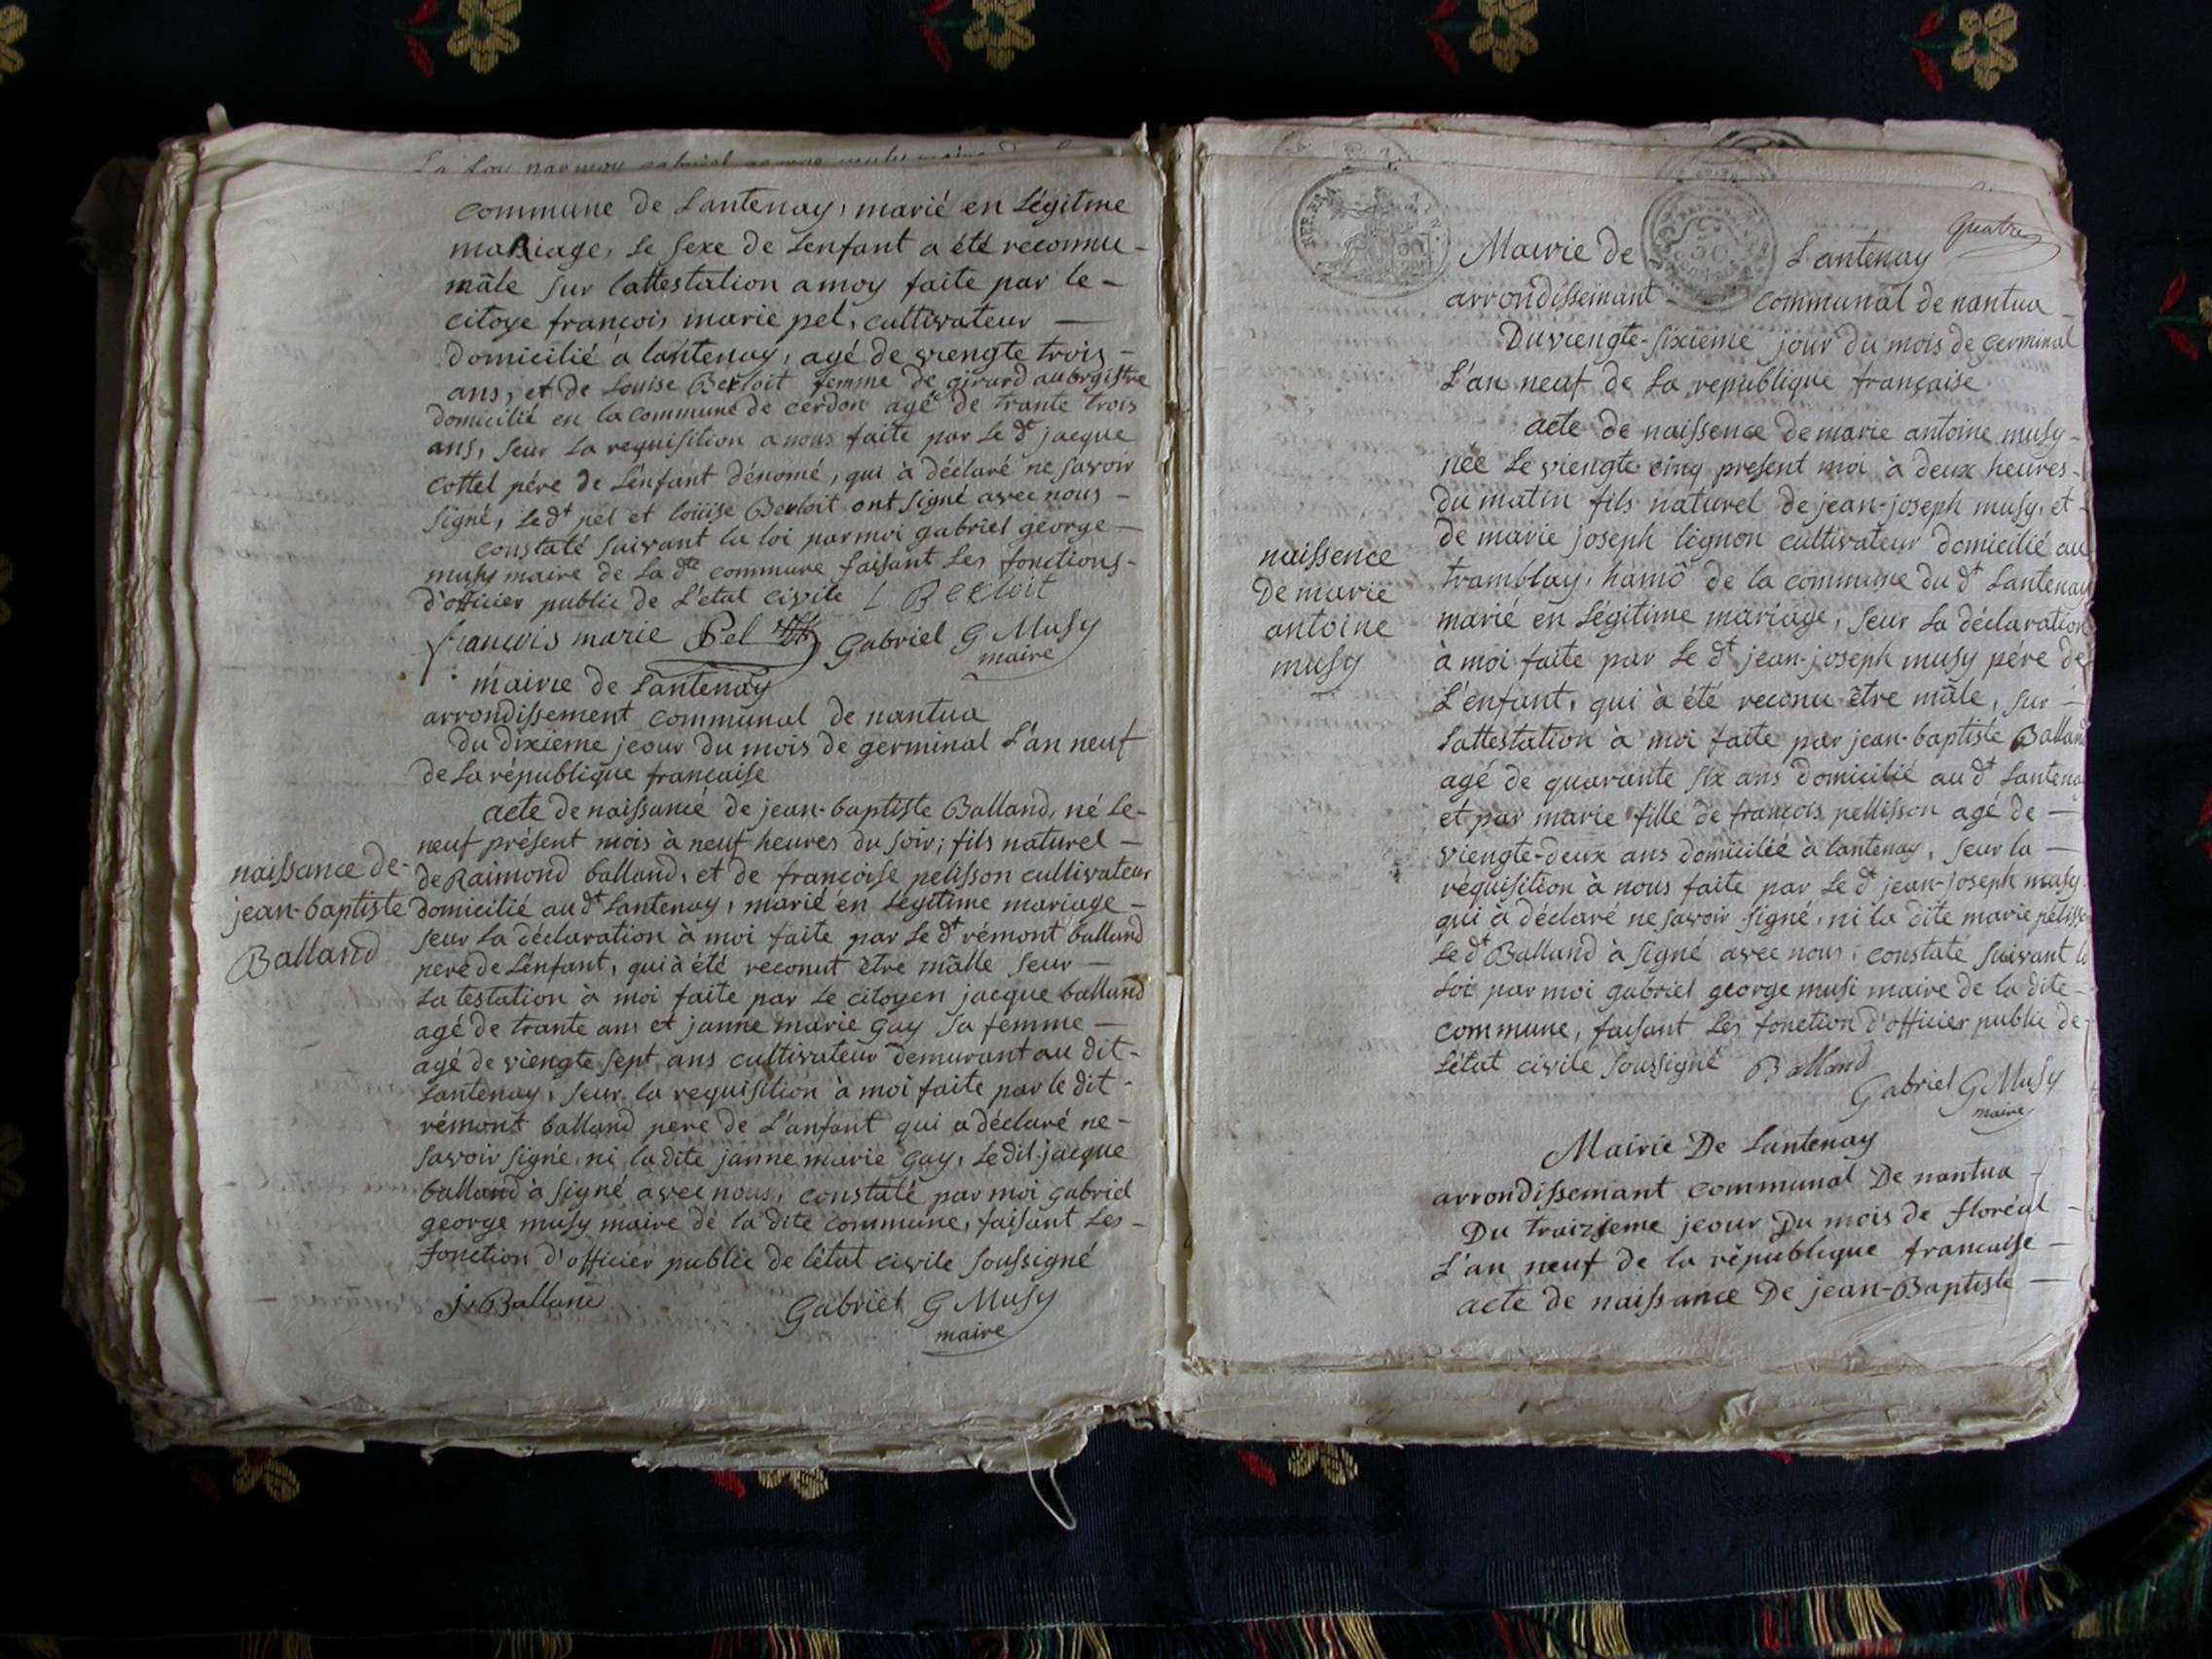 commune de Lantenay, marié en Légitme
maRiage, Le sexe de Lenfant a été reconnu -
mâle sur lattestation a moy faite par le -
citoye françois marie pel, cultivateur —
domicilié a lantenay, agé de viengte trois -
ans, et de Louise Berloit femme de girard aubrgistre
domicilié en la commune de cerdon agé de trante trois
ans, seur la requisition a nous faite par Le dt jacque
Cottel pére de L'enfant dénomé, qui à déclaré ne savoir
signé, Le dt pel et loüise Berloit ont signé avec nous -
constaté suivant la loi par moi gabriel george —
musy maire de La dte commune faisant Les fonctions -
d'officier public de L'état civile L Berloit
françois marie Pel Gabriel G Musy
maire
mairie de Lantenay
arrondissement communal de nantua
du dixieme jeour du mois de germinal L'an neuf
de La république française
acte de naissance de jean-baptiste Balland, né Le -
neuf présent mois à neuf heures du soir; fils naturel —
naissance de
jean-baptiste
Balland
de Raimond balland, et de françoise pelisson cultivateur
domicilié au dt Lantenay, marié en Légitime mariage -
seur La déclaration à moi faite par Le dt rémont balland
pere de L'enfant, qui à été reconut être mâlle seur —
La testation à moi faite par Le citoyen jacque balland
agé de trante ans et janne marie Gay sa femme —
agé de viengte sept ans cultivateur demurant au dit -
Lantenay, seur la requisition à moi faite par le dit -
rémont balland pere de L'anfant qui a déclaré ne -
savoir signe, ni la dite janne marie Gay, Le dit jacque
balland à signé avec nous, constaté par moi gabriel
george musy maire de la dite commune, faisant Les -
fonction d'officier public de létat civile soussigné
j. Balland Gabriel G Musy
maire
quatre
Mairie de Lantenay
arrondissemant - communal de nantua -
Du viengte-sixieme jour du mois de germinal
L'an neuf de La republique française
acte de naissence de marie antoine musy -
née Le viengte cinq present moi à deux heures -
du matin fils naturel de jean-joseph musy, et -
de marie joseph lognon cultivateur domicilié au
tramblay, hamô de la commune du dt Lantenay
naissence
De marie
antoine
musy
marié en Légitime mariage, seur La déclaration
à moi faite par Le dt jean-joseph musy pére de
L'enfant, qui à été reconu être mâle, sur -
Lattestation à moi faite par jean-baptiste Balland
agé de quarante six ans domicilié au dt Lantena
et par marie fille de françois pellisson agé de —
viengte-deux ans domiciliée à lantenay, seur la —
réquisition à nous faite par Le dt jean-joseph musy
qui à déclaré ne savoir signé, ni la dite marie pélisso
Le dt Balland à signé avec nous; constate suivant la
Loi par moi gabriel george musi maire de la dite -
commune, faisant Les fonction d'officier public de -
L'état civile soussigné Balland
Gabriel G Musy
maire
Mairie De Lantenay
arrondissemant communal De nantua -
Du traizieme jeour Du mois de floréal -
L'an neuf de la république francaise -
acte de naissance De jean-Baptiste —